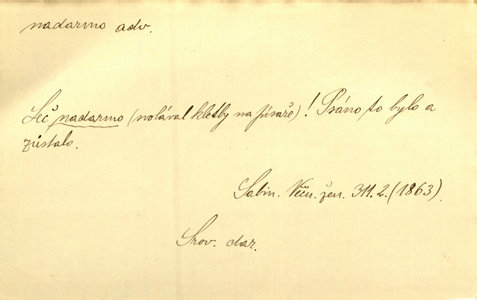 nadarmo adv.
Leč nadarmo (volával kletby na písaře)! Psáno to bylo a
zůstalo.
Sabin. Věčn. žen. 311.2. (1863).
Srov. dar.